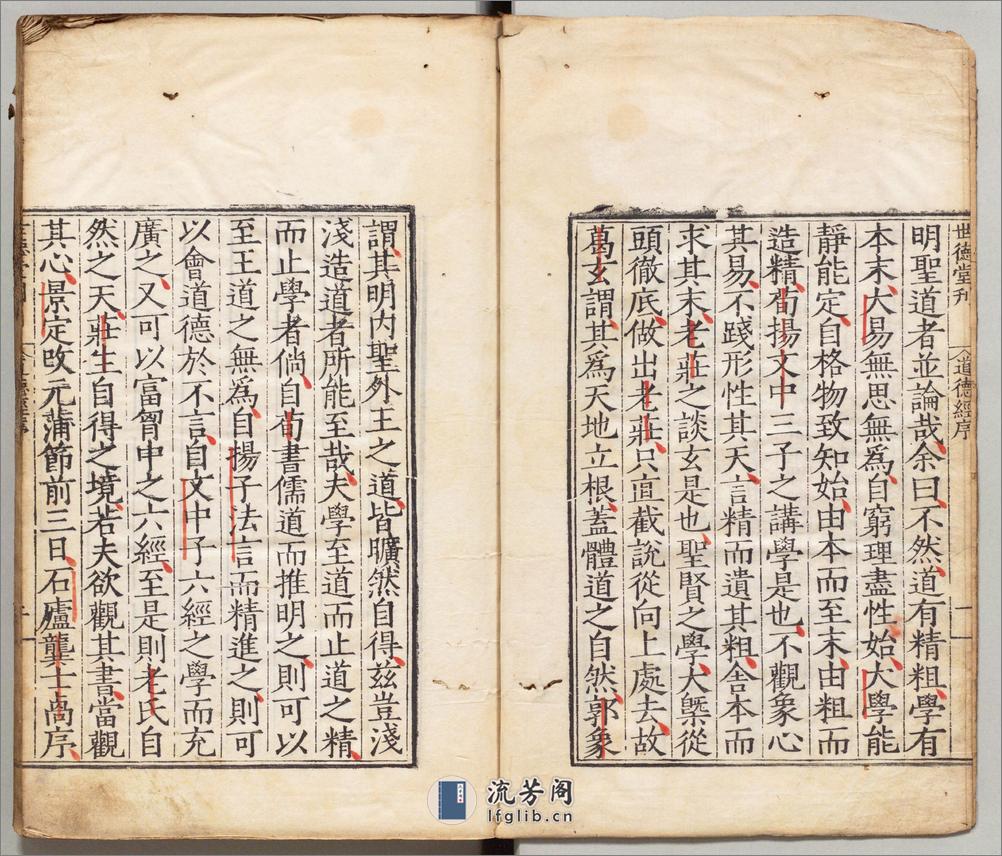 世德堂刊
道德經序
二
明聖道者並論哉余曰不然道有精粗學有
本末大易無思無爲自窮理盡性始大學能
靜能定自格物致知始由本而至末由粗而
造精荀揚文中三子之講學是也不觀象心
其易不踐形性其天言精而遺其粗舍本而
求其末老莊之談玄是也聖賢之學大槩從
頭徹底做出老莊只直截說從向上處去故
葛玄謂其爲天地立根蓋體道之自然郭象
謂其明內聖外王之道皆曠然自得兹豈淺
淺造道者所能至哉夫學至道而止道之精
而止學者倘自荀書儒道而推明之則可以
至王道之無爲自揚子法言而精進之則可
以會道德於不言自文中子六經之學而充
廣之又可以富胷中之六經至是則老氏自
然之天莊生自得之境若夫欲觀其書當觀
其心景定改元蒲節前三日石廬龔士卨序
流芳阁
lfglib.cn